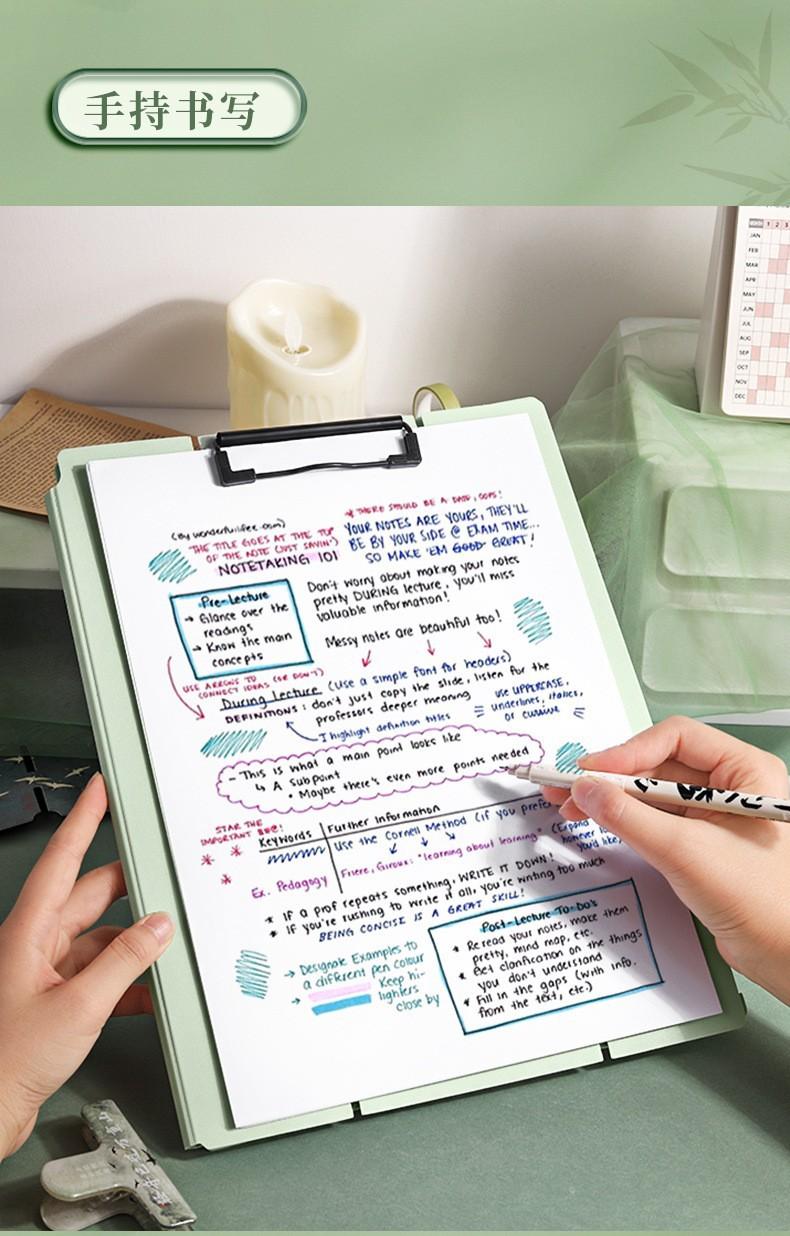 手持书写
MONTH 1 2 3
JAN
FEB
MAR
APR
MAY
JUN
JUL
AUG
SEP
OCT
NOV
DEC
(By wonderfullifee.osm)
* THERE SHOULD BE A DATE, OOPS!
"THE TITLE GOES AT THE TOP
OF THE NOTE (JUST SAYIN')
NOTETAKING 101
YOUR NOTES ARE YOURS, THEY'LL
BE BY YOUR SIDE @ EXAM TIME...
SO MAKE 'EM GOOD GREAT!
Pre-Lecture
→ Glance over the
readings
→ Know the main
concepts
Don't worry about making your notes
pretty DURING lecture, you'll miss
valuable information!
Messy notes are beautiful too!
USE ARROWS TO
CONNECT IDEAS (OR DON'T)
During Lecture (Use a simple font for headers)
DEFINITIONS: don't just copy the slide, listen for the
professors deeper meaning
I highlight definition titles
use UPPERCASE,
underlines, italics,
or cursive
- This is what a main point looks like
↳ A subpoint
• Maybe there's even more points needed
STAR THE
IMPORTANT
Keywords
Further Information
Use the Cornell Method (if you prefe
(Expand
however
you'd like)
Ex. Pedagogy
Friere, Giroux: "learning about learning"
* If a prof repeats something, WRITE IT DOWN!
* If you're rushing to write it all, you're writing too much
BEING CONCISE IS A GREAT SKILL!
→ Designate Examples to
a different pen colour
→ Keep hi-
lighters
close by
Post-Lecture To-Do's
* Reread your notes, make them
pretty, mind map, etc.
* Get clarification on the things
you don't understand
* Fill in the gaps (with info.
from the text, etc)